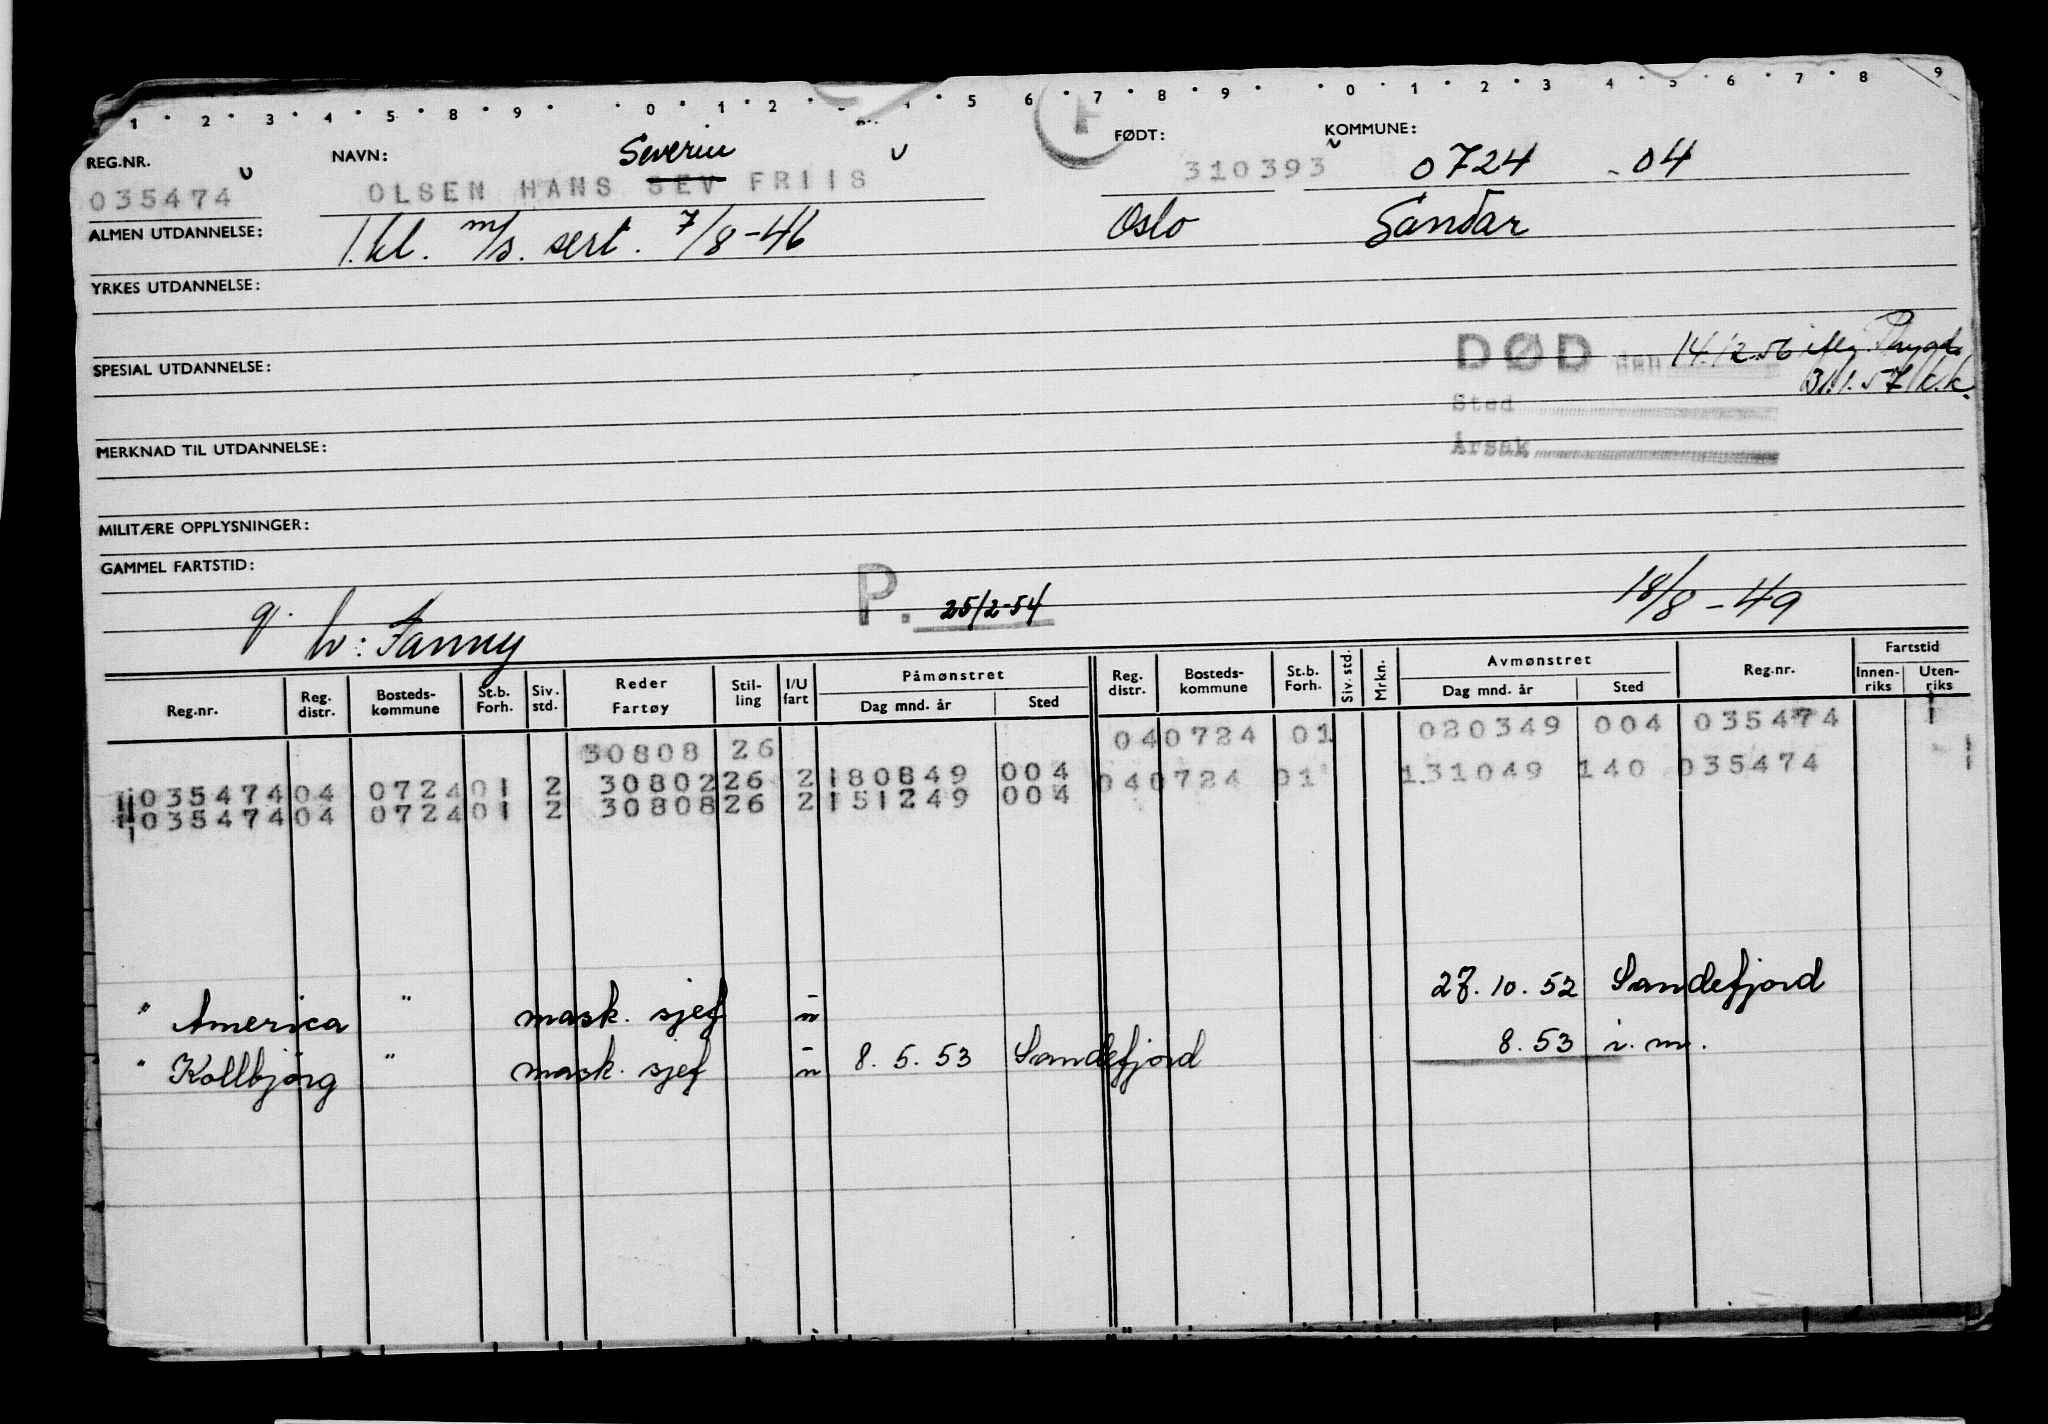 1 · 2 · 3 · 4 · 5 · 8 · 9 · · 0 · 1 · 2 · · 5 6 · 7 · 8 · 9 · · 0 · 1 · 2 · 3 · 4 · 5 · 6 · 7 · 8 9
REG.NR. NAVN: FØDT: KOMMUNE:
Severin
035474 OLSEN HANS SEV FRIIS 310393 0724 - 04
ALMEN UTDANNELSE: 1. kl. m/s. sert. 7/8-46 Oslo Sandar
YRKES UTDANNELSE:
SPESIAL UTDANNELSE: DØD den 14.12.56
31.1.57 k.k.
Sted
Årsak
MERKNAD TIL UTDANNELSE:
MILITÆRE OPPLYSNINGER:
GAMMEL FARTSTID:
g. h: Fanny P. 25/2-54 18/8-49
Reg.nr. Reg. distr. Bosteds-kommune St.b. Forh. Siv. std. Reder Fartøy Stil-ling I/U fart Påmønstret Dag mnd. år Sted Reg. distr. Bosteds-kommune St.b. Forh. Siv. std. Mrkn. Avmønstret Dag mnd. år Sted Reg.nr. Fartstid Innen-riks Uten-riks
30808 26 04 0724 01 020349 004 035474 1
035474 04 0724 01 2 30802 26 2 180849 004 04 0724 01 131049 140 035474 1
035474 04 0724 01 2 30808 26 2 151249 004
" America " mask. sjef u 27.10.52 Sandefjord
" Kollbjørg " mask. sjef u 8.5.53 Sandefjord 8.53 i. m.